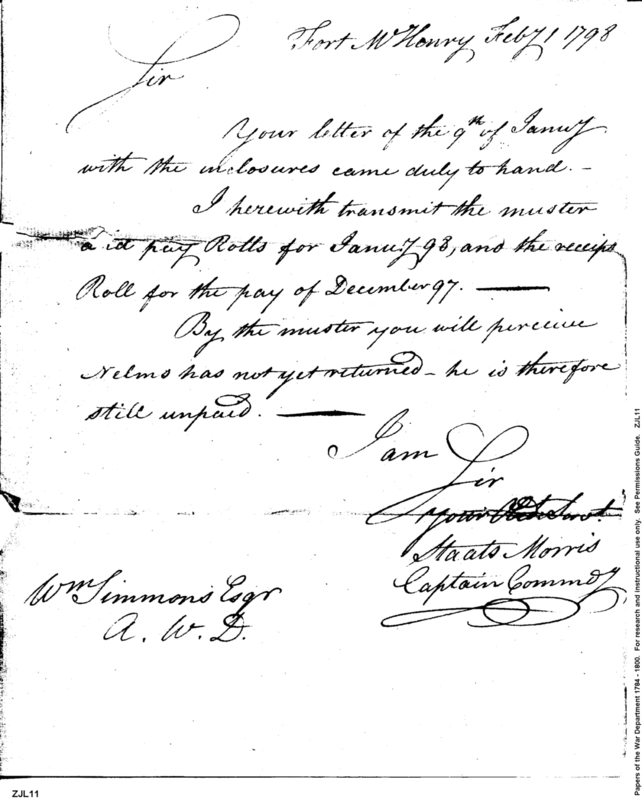 Fort McHenry Feby 1 1798
Sir
Your letter of the 9th of Januy
with the inclosures came duly to hand. -
I herewith transmit the muster
and pay Rolls for Januy 98, and the receips
Roll for the pay of December 97. —
By the muster you will perceive
Nelms has not yet returned - he is therefore
still unpaid. —
I am Sir
your Obt Servt.
Staats Morris
Captain Commdy
Wm Simmons Esqr
A. W. D.
Papers of the War Department 1784 - 1800. For research and instructional use only. See Permissions Guide. ZJL11
ZJL11